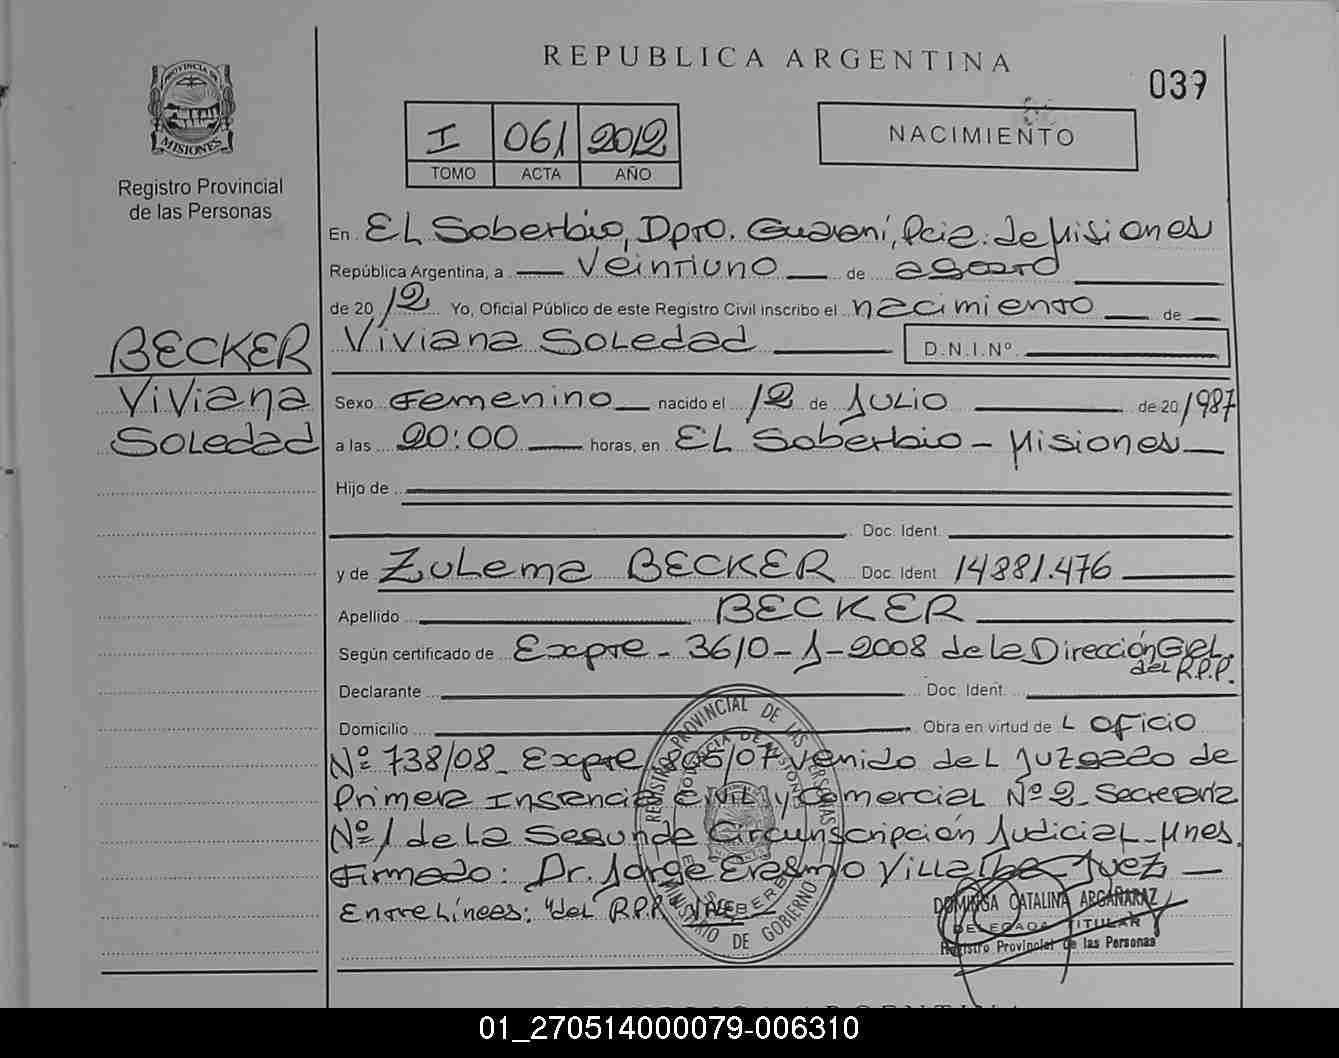 REPUBLICA ARGENTINA
037
PROVINCIA DE
MISIONES
Registro Provincial
de las Personas
I 061 2012
TOMO ACTA AÑO
NACIMIENTO
En El Soberbio, Dpto. Guaraní, Pcia. de Misiones
República Argentina, a veintiuno de agosto
de 2012 Yo, Oficial Público de este Registro Civil inscribo el nacimiento de
Viviana Soledad D.N.I.Nº
BECKER
Viviana
Soledad
Sexo Femenino nacido el 12 de Julio de 20 1987
a las 20:00 horas, en El Soberbio - Misiones
Hijo de
Doc. Ident.
y de Zulema BECKER Doc. Ident. 14881.476
Apellido BECKER
Según certificado de Expte - 3610-1-2008 de la Dirección Gel.
del R.P.P.
Declarante Doc. Ident.
Domicilio Obra en virtud de L oficio
Nº 738/08 Expte 806/07 venido del Juzgado de
Primera Instancia Civil y Comercial Nº 2 Secretaría
Nº 1 de la Segunda Circunscripción Judicial Mnes.
Firmado: Dr. Jorge Erasmo Villalba Juez
Entre Líneas: "del R.P.P. Vale
REGISTRO PROVINCIAL DE LAS PERSONAS
PROVINCIA DE MISIONES
EL SOBERBIO
MINISTERIO DE GOBIERNO
DOMINGA CATALINA ARGAÑARAZ
DELEGADA TITULAR
Registro Provincial de las Personas
01_270514000079-006310